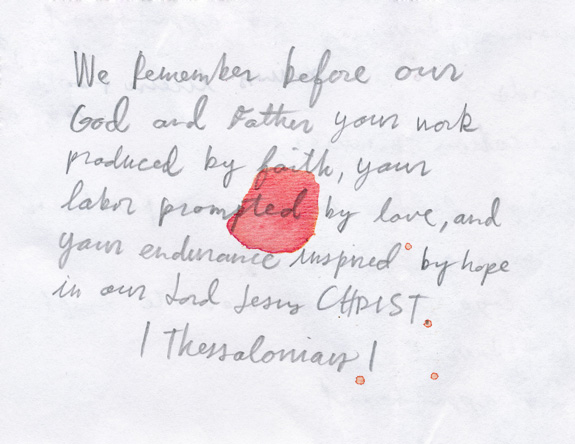 We Remember before our
God and Father your work
produced by faith, your
labor prompted by love, and
your endurance inspired by hope
in our Lord Jesus CHRIST.
1 Thessalonians 1